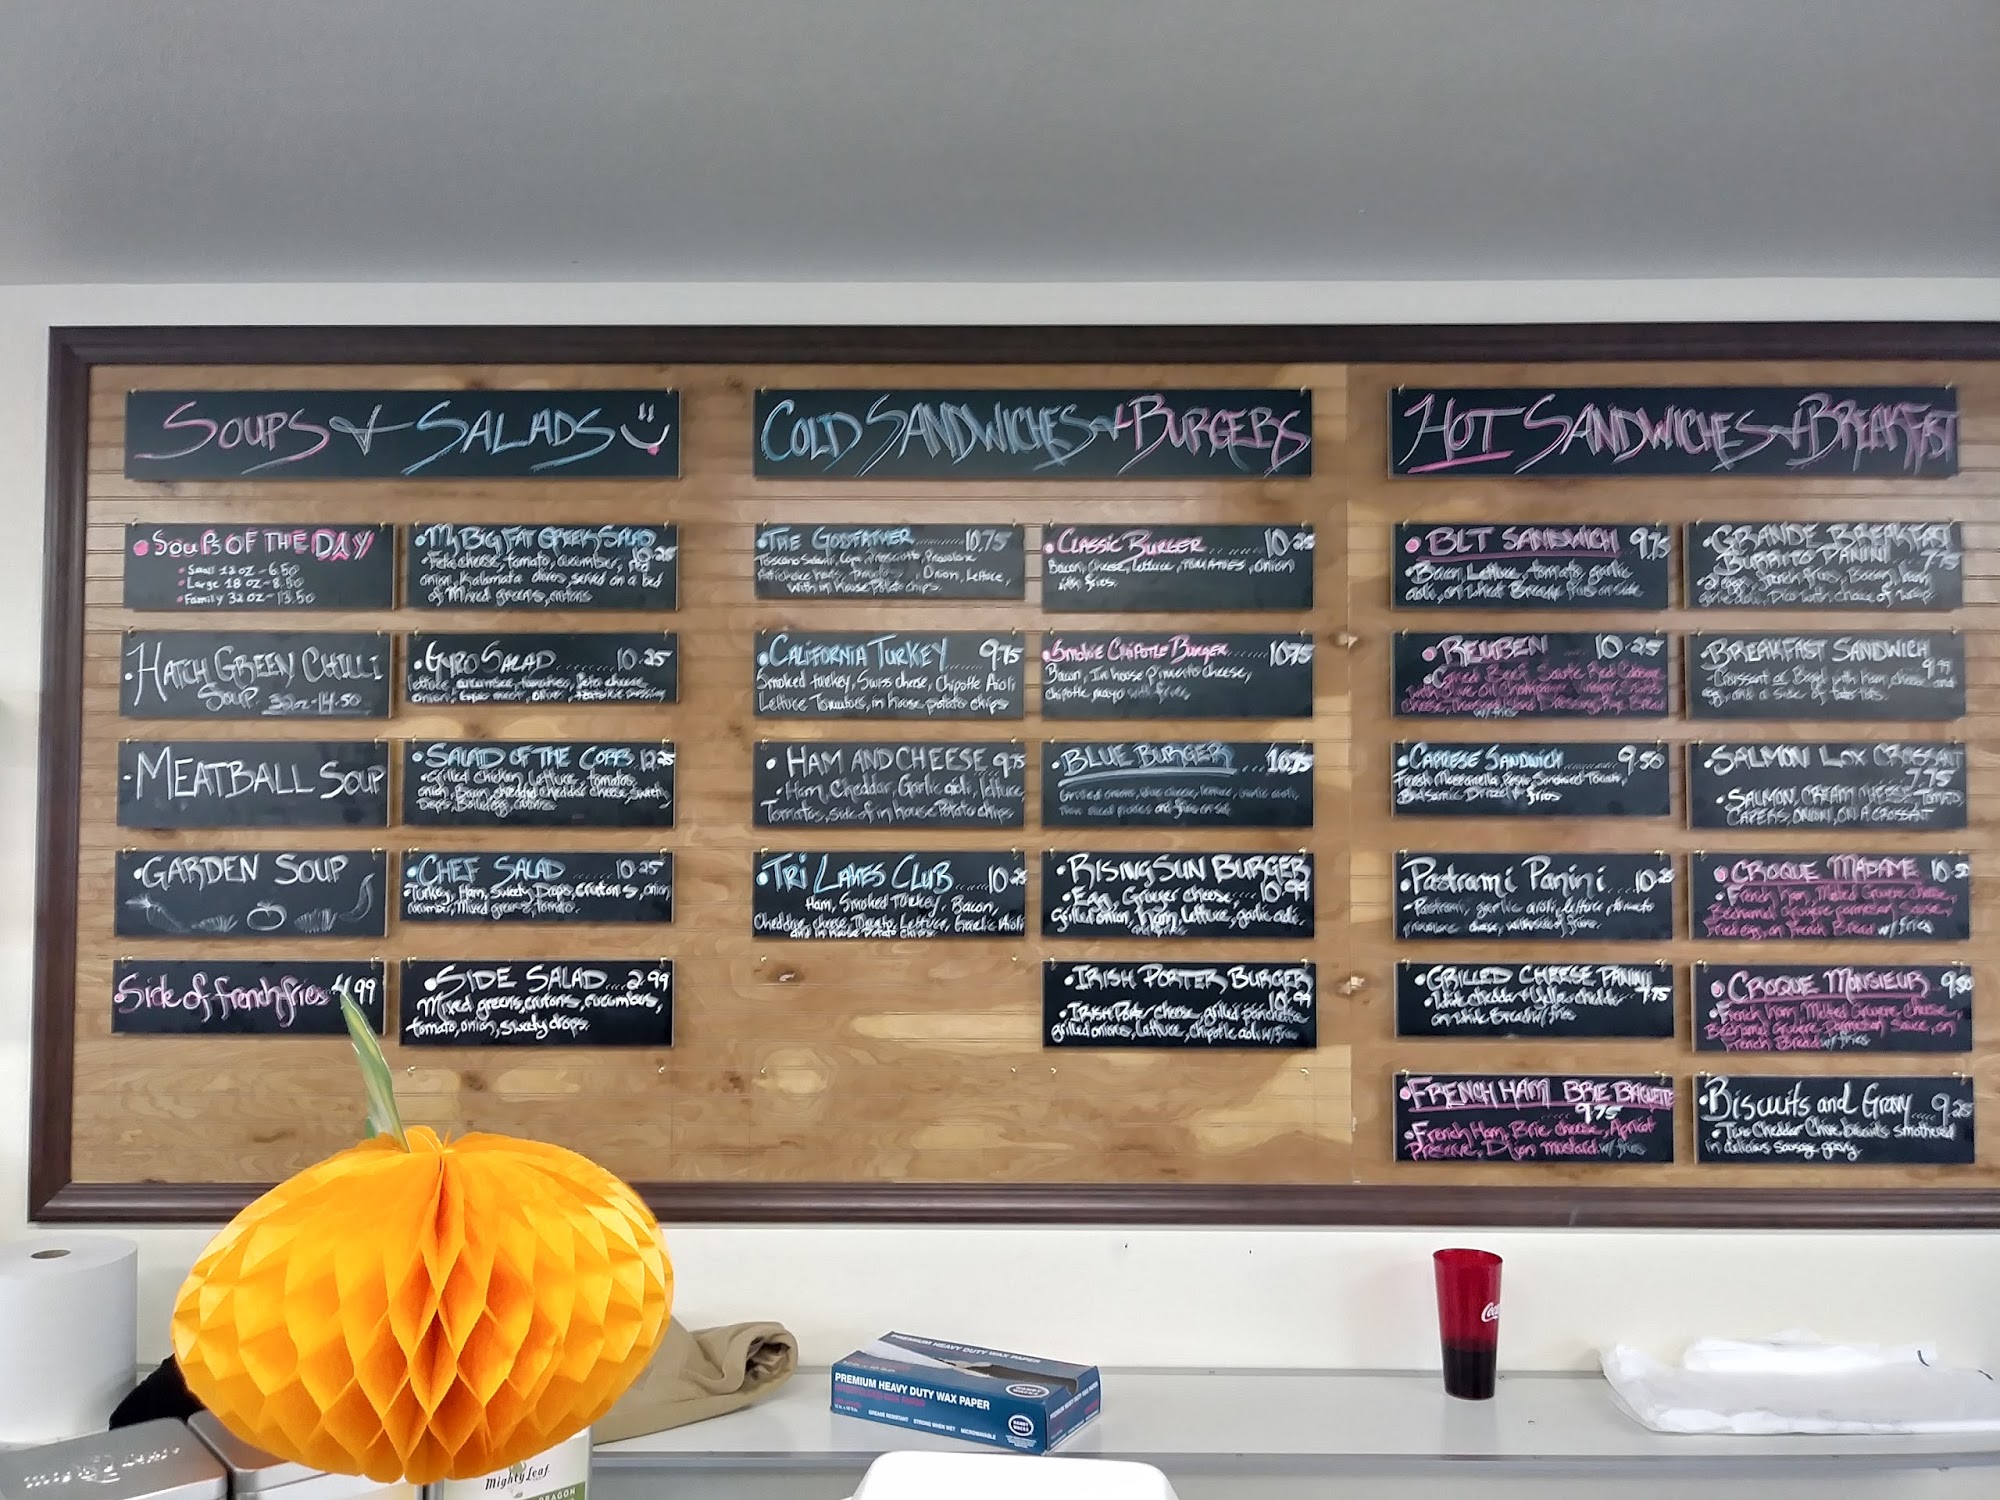 SOUPS & SALADS
SOUPS OF THE DAY
Small 12 oz - 6.50
Large 18 oz - 8.50
Family 32 oz - 13.50
HATCH GREEN CHILLI
SOUP 32oz - 14.50
MEATBALL SOUP
GARDEN SOUP
Side of french fries 4.99
My Big Fat Greek Salad
10.25
Feta cheese, tomato, cucumber, red
onion, Kalamata olives, served on a bed
of Mixed greens, crutons
GYRO SALAD ...... 10.25
lettuce, cucumber, tomatoes, feta cheese,
onion, gyro meat, olives, tzatzikie dressing
SALAD OF THE COPPS 12.25
Grilled chicken, lettuce, tomato,
onion, Bacon, shredded cheddar cheese, sweety
Drops, crutons
CHEF SALAD 10.25
Turkey, Ham, Sweety Drops, Crutons, onion
cucumber, mixed greens, tomato.
SIDE SALAD ... 2.99
Mixed greens, crutons, cucumbers,
tomato, onion, sweety drops.
COLD SANDWICHES & BURGERS
THE GODFATHER ...... 10.75
Toscano Salami, Capa, Prosciutto, Provolone
Artichoke hearts, Tomato, Onion, Lettuce,
with in house potato chips.
CALIFORNIA TURKEY 9.75
Smoked turkey, Swiss cheese, Chipotle Aioli
Lettuce Tomatoes, in house potato chips
HAM AND CHEESE 9.75
Ham, Cheddar, Garlic aioli, lettuce,
Tomatos, side of in house Potato chips
TRI LAKES CLUB ..... 10.25
Ham, Smoked Turkey, Bacon,
Cheddar, cheese, Tomato, Lettuce, Garlic Aioli
and in house potato chips.
CLASSIC BURGER ...... 10.25
Bacon, Cheese, lettuce, TOMATOES, onion
with fries.
Smokie Chipotle Burger ...... 10.75
Bacon, In house Pimento cheese,
Chipotle mayo with fries,
BLUE BURGER ..... 10.75
Grilled onions, blue cheese, lettuce, garlic aioli,
thin sliced pickles and fries on side.
RISING SUN BURGER
10.99
Egg, Gruyer cheese,
Grilled onion, ham, lettuce, garlic aoli.
IRISH PORTER BURGER
10.99
IRISH Porter cheese, grilled panchetta
grilled onions, lettuce, chipotle aoli w/fries
HOT SANDWICHES & BREAKFAST
BLT SANDWICH 9.75
Bacon, Lettuce, tomato, garlic
aoli, on wheat Bread fries on side
REUBEN ...... 10.25
Corned Beef, Saute Red Cabbage
with Olive Oil Champagne Vinegar Swiss
cheese, Thousand Island Dressing, Rye Bread
w/ fries
CAPRESE SANDWICH ........ 9.50
Fresh Mozzarella, Pesto, Sundried Tomato,
Balsamic Drizel & fries
Pastrami Panini ... 10.25
Pastrami, garlic aioli, lettuce, tomato
provolone cheese, with side of fries.
GRILLED CHEESE PANINI
7.75
White cheddar & Yellow cheddar
on White Bread w/ fries
FRENCH HAM BRIE BAGUETTE
9.75
French Ham, Brie cheese, Apricot
Preserve, Dijon mustard w/ fries
GRANDE BREAKFAST
BURRITO PANINI 7.75
2 eggs, french fries, Bacon, ham,
garlic aoli, Pico with choice of wrap
BREAKFAST SANDWICH
9.99
Croissant or Bagel with ham, cheese and
egg, and a side of tater tots.
SALMON LOX CROSSANT
7.75
SALMON, CREAM CHEESE, TOMATO,
CAPERS, ONION, ON A CROSSANT
CROQUE MADAME ... 10.50
French ham, Melted Gruyere Cheese,
Bechamel Gruyere parmesan Sauce,
Fried egg, on French Bread w/ fries
CROQUE MONSIEUR 9.50
French ham, Melted Gruyere Cheese,
Bechamel Gruyere Parmesan Sauce, on
French Bread w/ fries
Biscuits and Gravy ..... 9.25
Two Cheddar Chive biscuits smothered
in delicious sausage gravy.
PREMIUM HEAVY DUTY WAX PAPER
PREMIUM HEAVY DUTY WAX PAPER
GREASE RESISTANT STRONG WHEN WET MICROWAVABLE
Coca
Mighty Leaf
Mighty Leaf
DRAGON